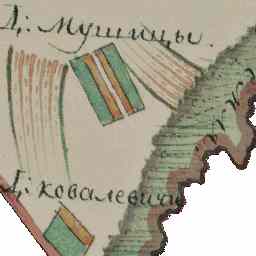 Д: Мушицы.
Д: ковалевичи